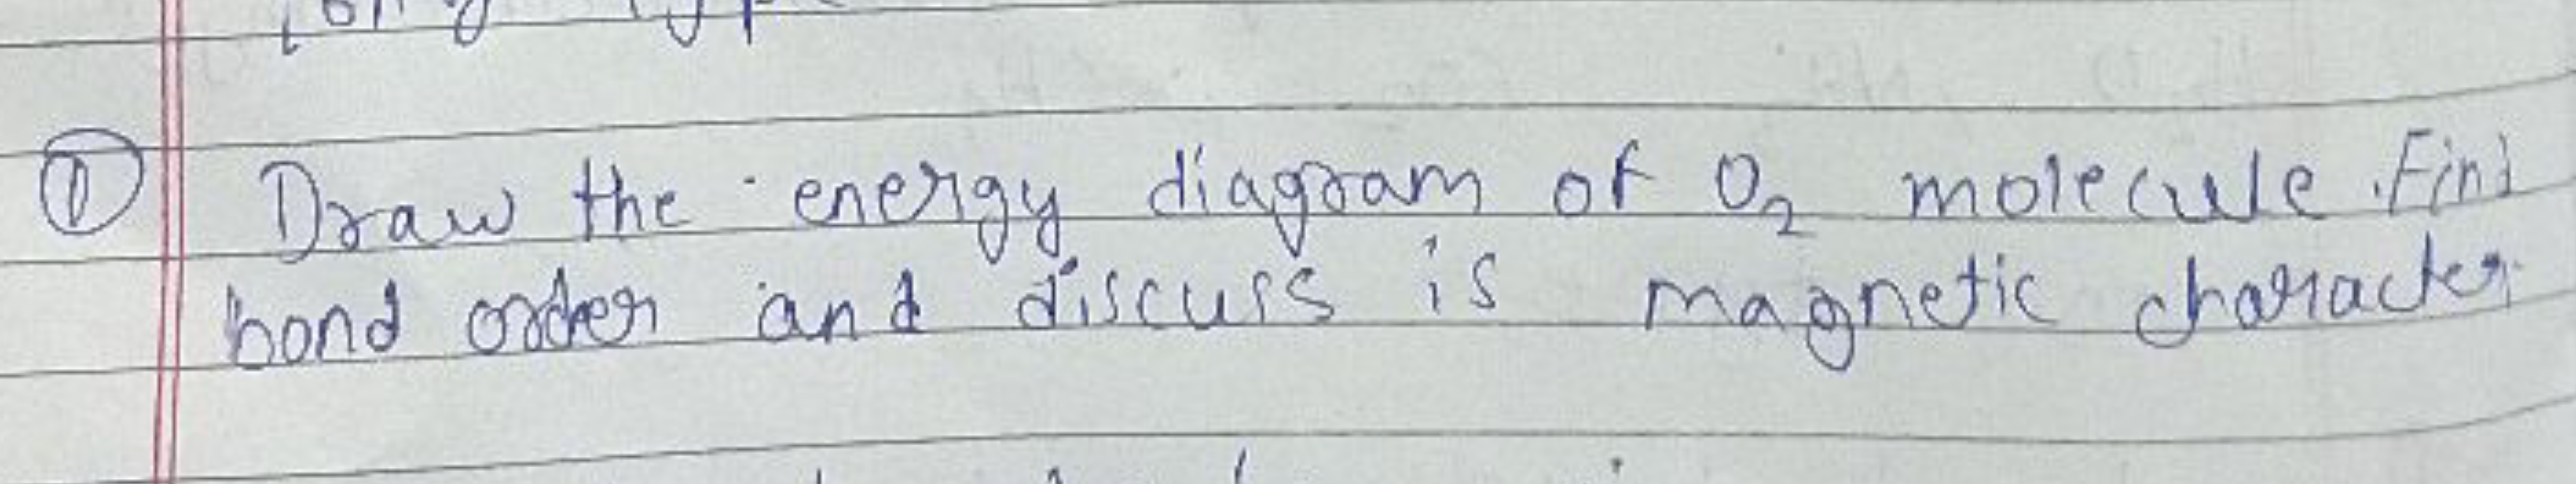 ① Draw the energy diagram of O₂ molecule. Find
bond order and discuss is magnetic character